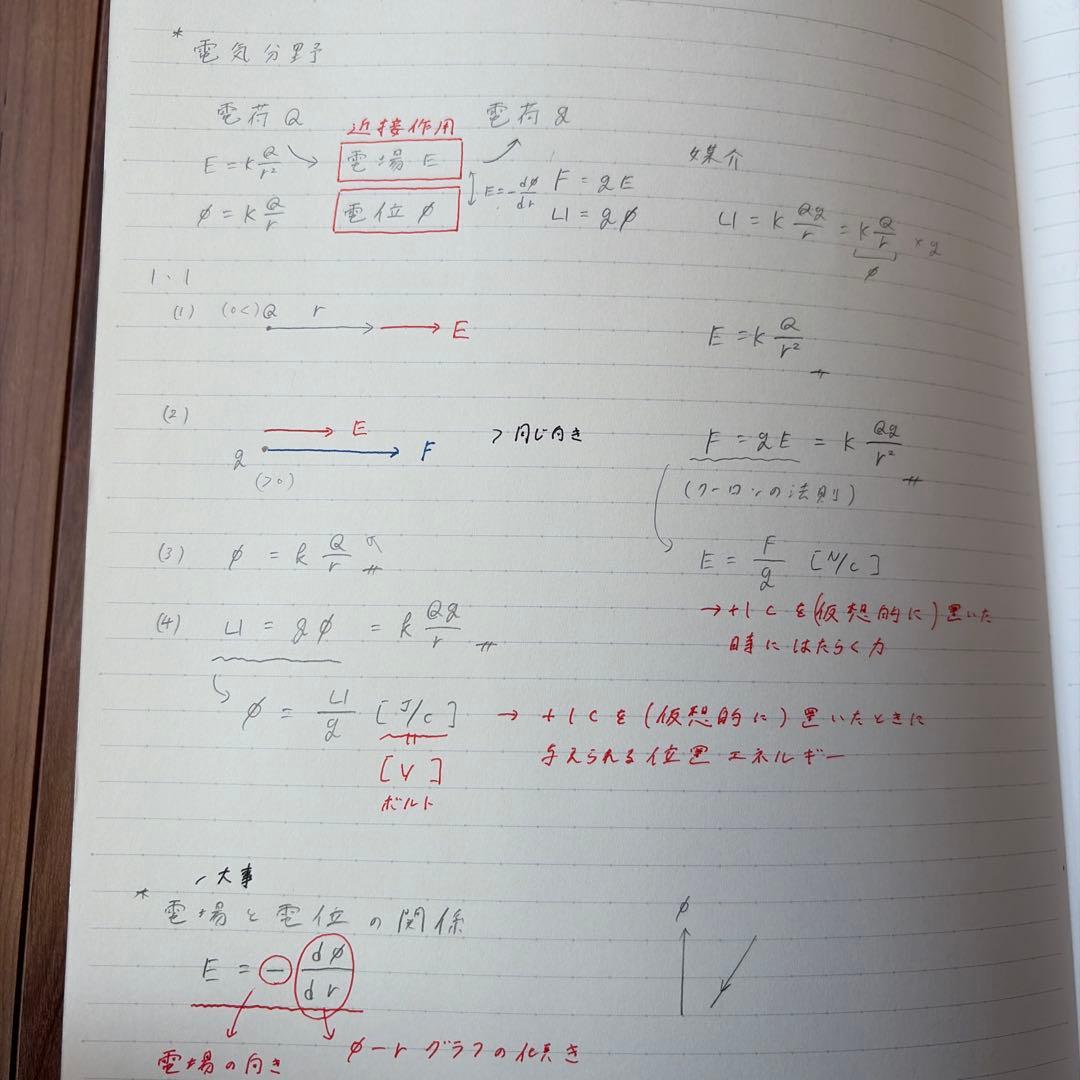 * 電気分野
電荷Q 近接作用 電荷q
E = k Q/r² 電場 E 媒介
E = -dφ/dr F = qE
φ = k Q/r 電位 φ U = qφ U = k Qq/r = k Q/r × q
φ
1、1
(1) (0<)Q r E E = k Q/r²
(2) E > 同じ向き F = qE = k Qq/r²
q F
(>0) (クーロンの法則)
(3) φ = k Q/r E = F/q [N/C]
→ +1Cを(仮想的に)置いた
時にはたらく力
(4) U = qφ = k Qq/r
φ = U/q [J/C] → +1Cを(仮想的に)置いたときに
与えられる位置エネルギー
[V]
ボルト
大事
* 電場と電位の関係 φ
E = - dφ/dr
電場の向き φ-rグラフの傾き